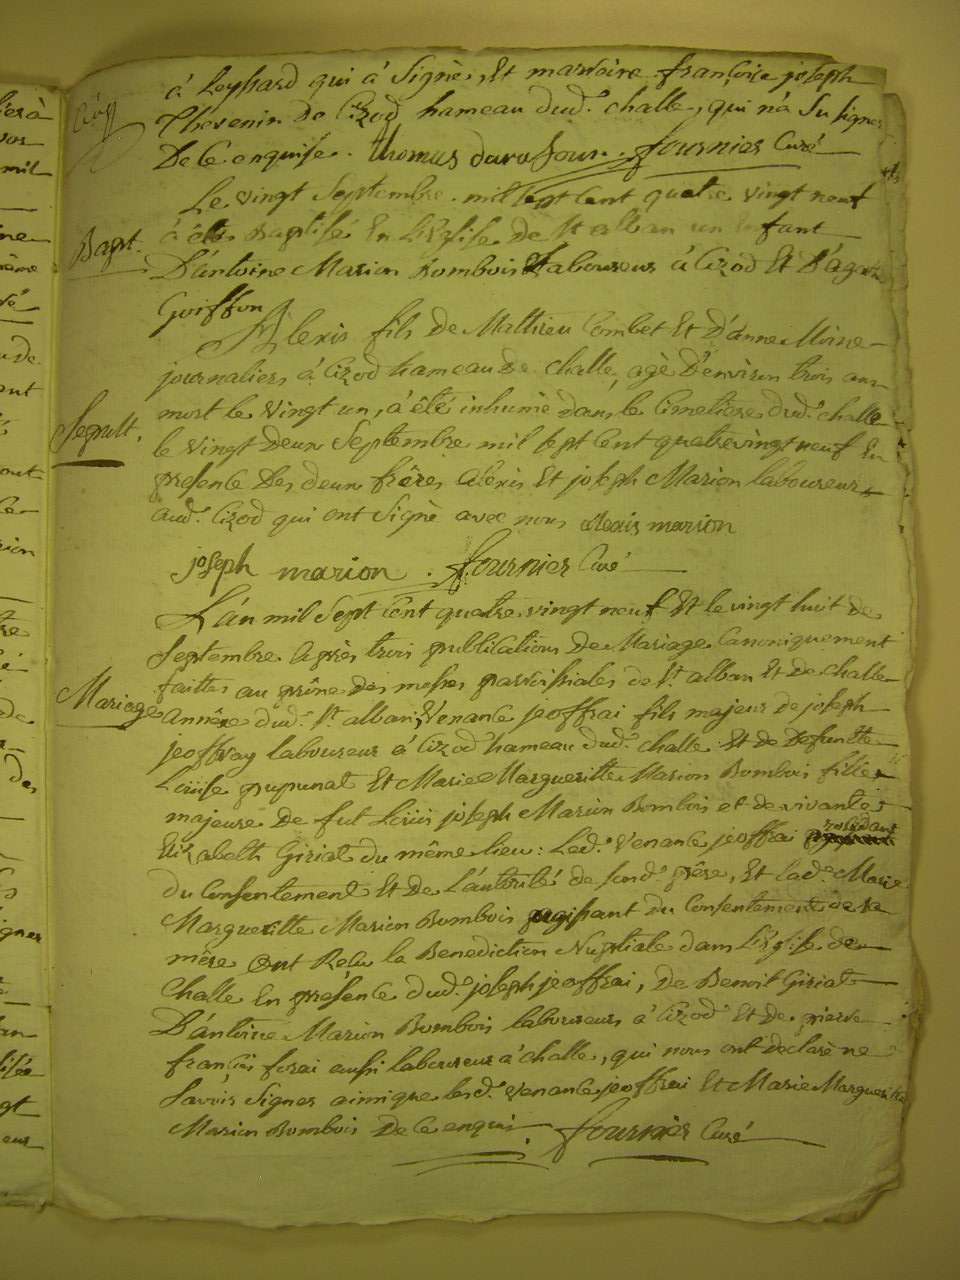 Cinq
à Leyssard qui à Signé, Et marraine françoise joseph
Thevenin De Cizod hameau dud.t challe, qui n'a Su signer
De Ce enquise. thomas darasour. fournier Curé
Bapt.
Le vingt Septembre mil sept Cent quatre vingt neuf
à été Baptisé En L'église De St alban un Enfant
D'antoine Marion Bombois Laboureur à Cizod Et D'agathe
Goiffon
Sepult.
Alexis fils de Mathieu Combet Et D'anne Moine
journaliers à Cizod hameau De challe, agé D'environ trois ans
mort le vingt un, à été inhumé dans le Cimetiere dud.t challe
le vingt Deux Septembre mil sept Cent quatre vingt neuf En
presence Des deux frères alexis Et joseph Marion laboureurs
aud.t Cizod qui ont Signé avec nous alexis marion
joseph marion. fournier Curé
Mariage
L'an mil Sept Cent quatre vingt neuf Et le vingt huit de
Septembre après trois publications De Mariage Canoniquement
faittes au prône des messes parroissiales de St alban Et de challe
annêxe dud.t St alban, Venance jeoffrai fils majeur de joseph
jeoffray laboureur à Cizod hameau dud.t challe Et de Defuntte
Loüise pupunat Et Marie Margueritte Marion Bombois fille
majeure De fut Loüis joseph Marion Bombois et de vivante
Elizabeth Giriat du même lieu: Led.t Venance jeoffrai procedant
du Consentement Et De L'autorité de sond.t père, Et lad.e Marie
Margueritte Marion Bombois agissant du Consentement de sa
mère ont Reçu la Benediction Nuptiale dans L'église de
Challe En présence dud.t joseph jeoffrai, De Benoit Giriat
D'antoine Marion Bombois laboureurs à Cizod Et De pierre
françois forai aussi laboureur à challe, qui nous ont declaré ne
Savoir Signer ainsi que led.t Venance jeoffrai Et Marie Margueritte
Marion Bombois De Ce enquis. fournier Curé